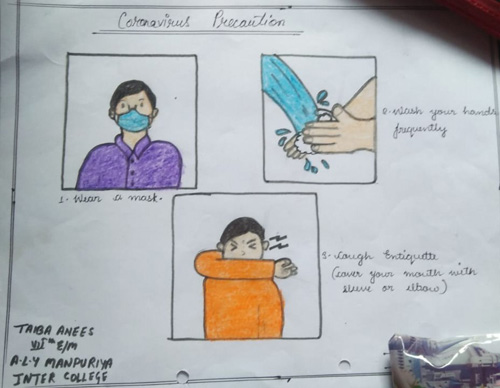 Coronavirus Precaution
1- Wear a mask.
2-Wash your hands
frequently
3- Cough Entiquette
(cover your mouth with
sleeve or elbow)
TAIBA ANEES
VIIth E/M
A-L-Y MANPURIYA
INTER COLLEGE